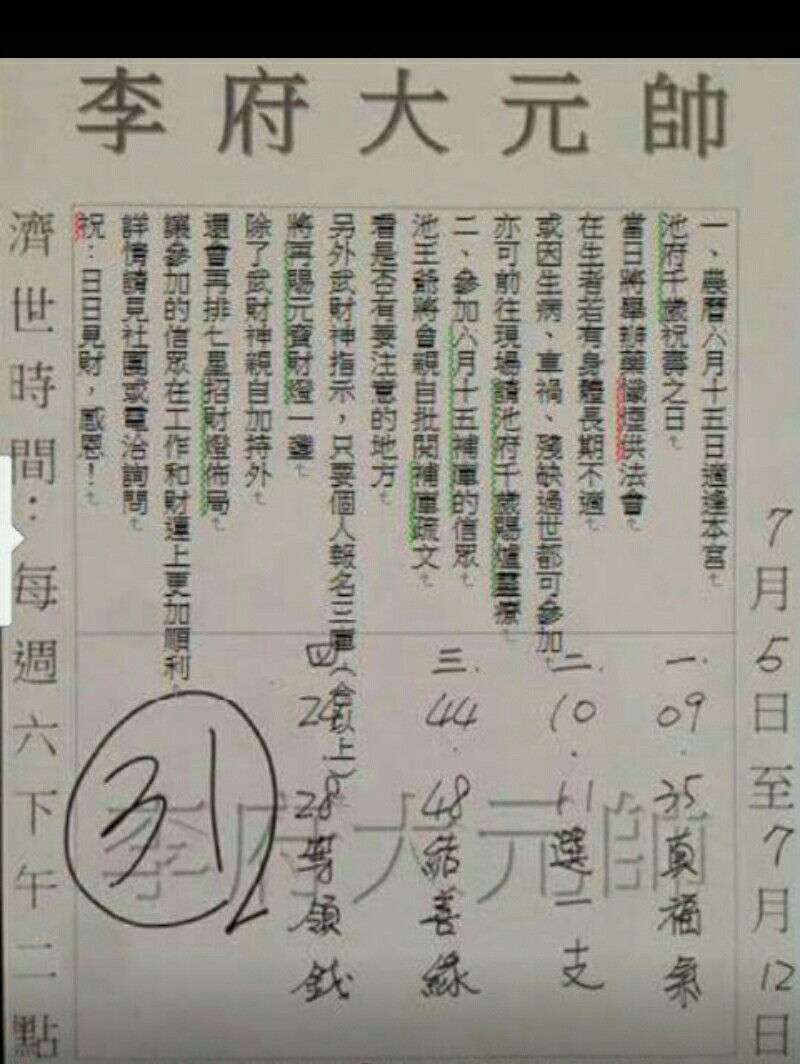 李府大元帥
7月5日至7月12日
一、農曆六月十五日適逢本宮
池府千歲祝壽之日
當日將舉辦藥懺煙供法會
在生者若有身體長期不適
或因生病、車禍、殘缺過世都可參加
亦可前往現場請池府千歲賜爐靈療
二、參加六月十五補庫的信眾
池王爺將會親自批閱補庫疏文
看是否有要注意的地方
另外武財神指示，只要個人報名三庫(含以上)
將再賜元寶財燈一盞
除了武財神親自加持外
還會再排七星招財燈佈局
讓參加的信眾在工作和財運上更加順利
詳情請見社團或電洽詢問
祝：日日見財，感恩！
一. 09.35真福氣
二. 10.11選一支
三. 44.48結善緣
四 24 28等領錢
31
李府大元帥
濟世時間：每週六下午二點